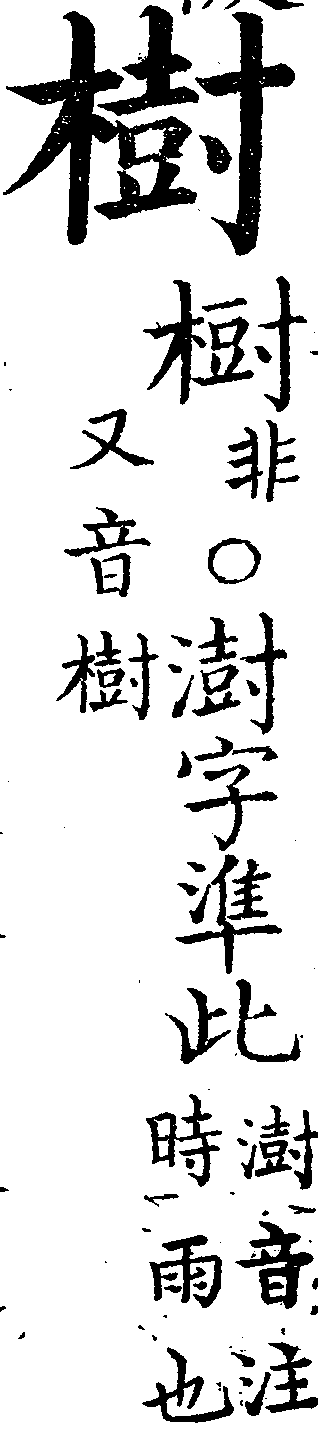 樹
非○澍字準此
澍音注
時雨也
又音樹